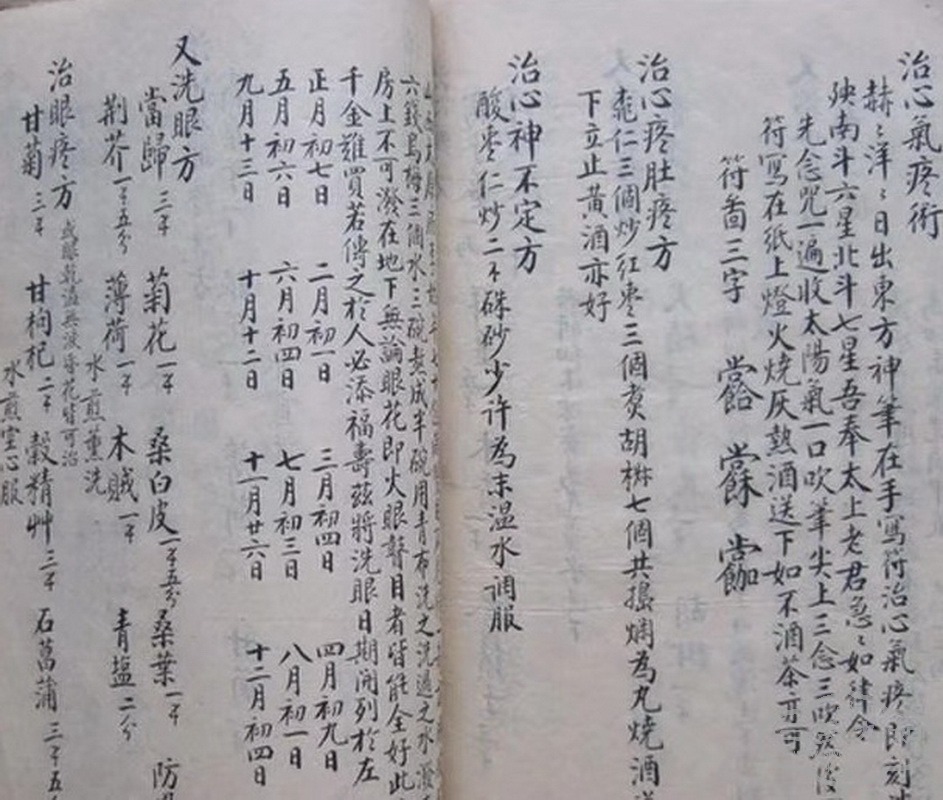 治心氣疼術
赫〻洋〻日出東方神筆在手寫符治心氣疼即刻
殃南斗六星北斗七星吾奉太上老君急〻如律令
先念咒一遍收太陽氣一口吹筆尖上三念三吹然後
符寫在紙上燈火燒灰熱酒送下如不酒茶亦可
符啚三字
治心疼肚疼方
桃仁三個炒紅枣三個煑胡椒七個共搗爛為丸燒酒送
下立止黃酒亦好
治心神不定方
酸枣仁炒二个硃砂少许為末温水调服
六錢烏梅三個水三碗煑成半碗用青布洗之洗過之水潑
房上不可潑在地下無論眼花即火眼瞽目者皆能全好此
千金難買若傳之於人必添福壽茲將洗眼日期開列於左
正月初七日 二月初一日 三月初四日 四月初九日
五月初六日 六月初四日 七月初三日 八月初一日
九月十三日 十月十二日 十一月廿六日 十二月初四日
又洗眼方
當歸三千 菊花一千 桑白皮一千五分 桑葉一千 防
荆芥一千五分 薄荷一千 木賊一千 青塩二分
水煎薰洗
治眼疼方 或眼乾澁無淚昏花皆可治
甘菊三千 甘枸杞二千 穀精艸三千 石菖蒲三千五
水煎空心服